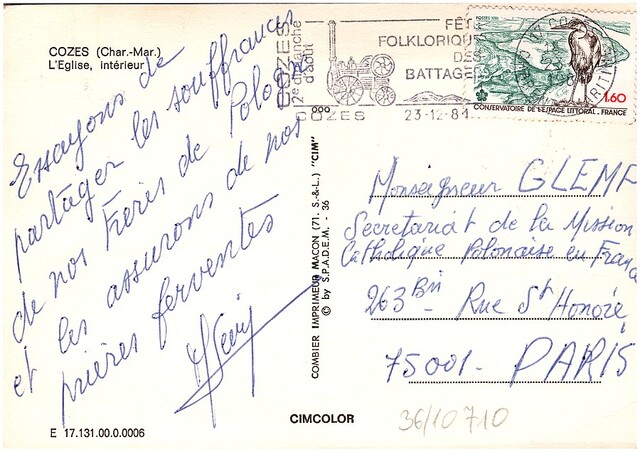 COZES (Char.-Mar.)
L'Eglise, intérieur
Essayons de
partager les souffrances
de nos Frères de Pologne
et les assurons de nos
prières ferventes
COZES
2e dimanche
d'août
FÊTE
FOLKLORIQUE
DES
BATTAGES
COZES 23-12-81
1,60
CONSERVATOIRE DE L'ESPACE LITTORAL . FRANCE
Monseigneur GLEMP
Secretariat de la Mission
Catholique Polonaise en France
263 Bis Rue St Honoré
75001 - PARIS
COMBIER IMPRIMEUR MACON (71. S.-&-L.) "CIM"
© by S.P.A.D.E.M. - 36
CIMCOLOR
36/10710
E 17.131.00.0.0006